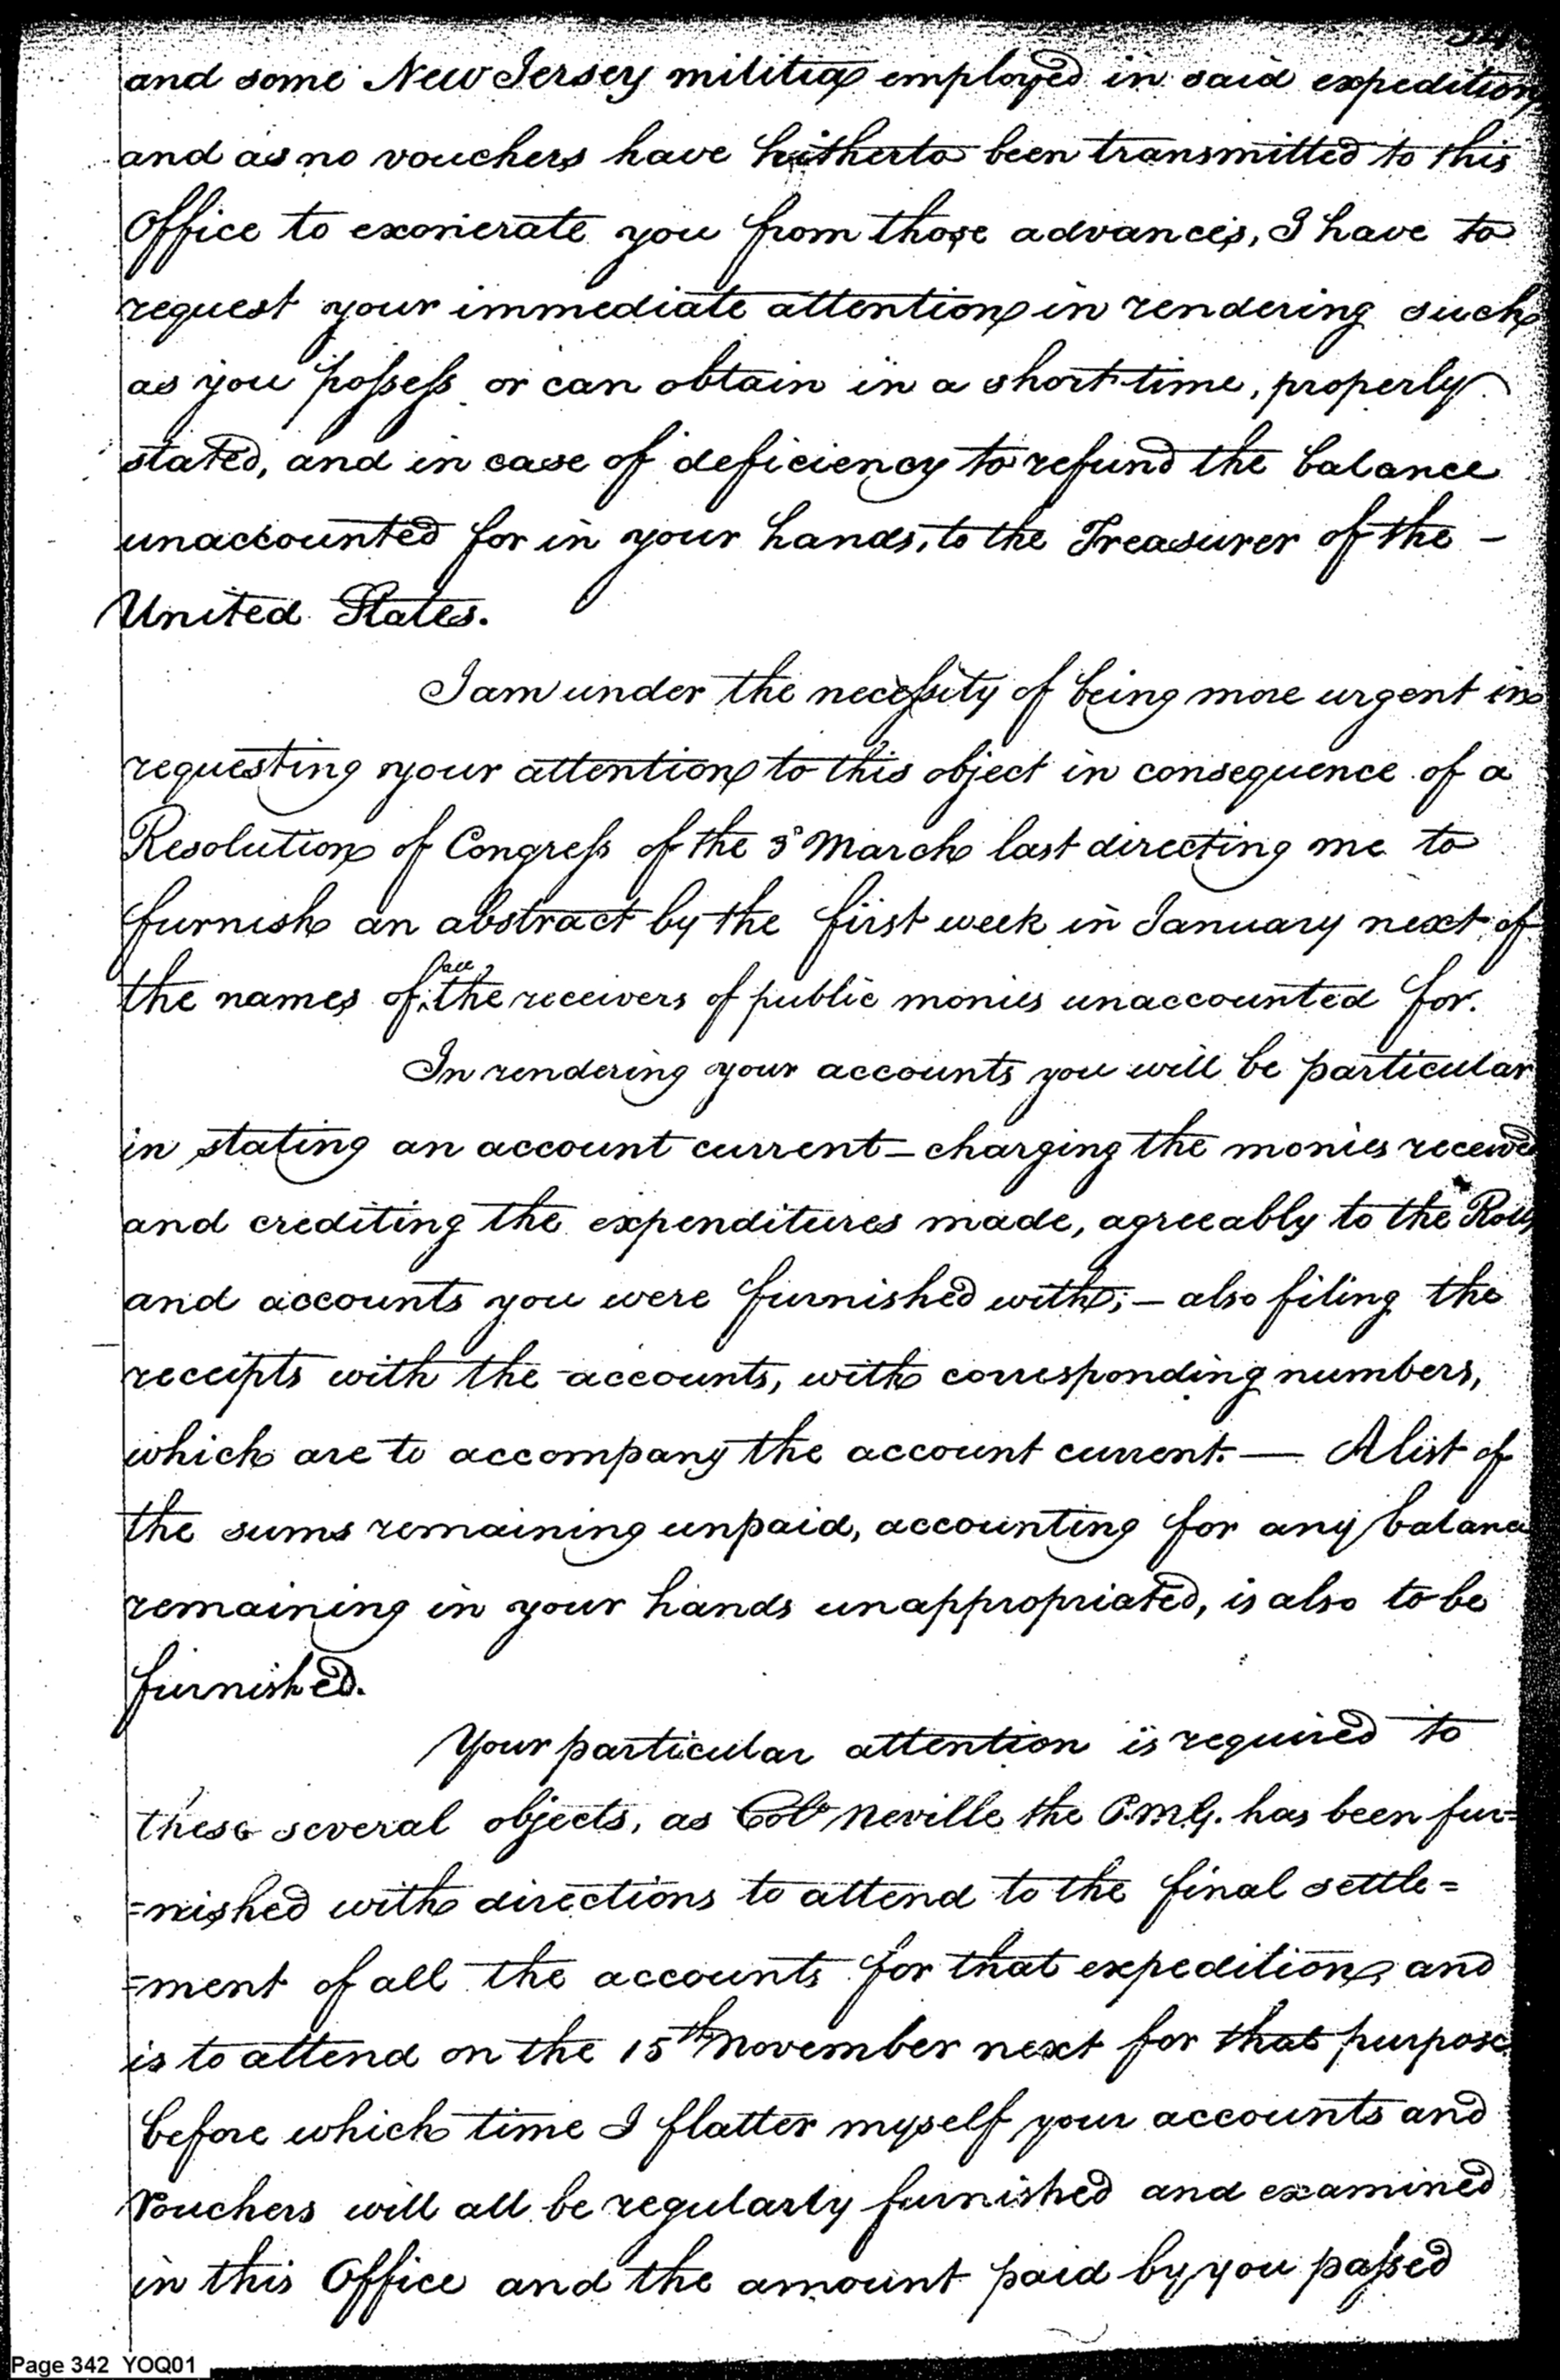 and some New Jersey militia employed in said expedition,
and as no vouchers have hitherto been transmitted to this
Office to exonerate you from those advances, I have to
request your immediate attention in rendering such
as you possess or can obtain in a short time, properly
stated, and in case of deficiency to refund the balance
unaccounted for in your hands, to the Treasurer of the –
United States.
I am under the necessity of being more urgent in
requesting your attention to this object in consequence of a
Resolution of Congress of the 3d March last directing me to
furnish an abstract by the first week in January next of
all
the names of the receivers of public monies unaccounted for.
In rendering your accounts you will be particular
in stating an account current – charging the monies received
and crediting the expenditures made, agreeably to the Rolls
and accounts you were furnished with; – also filing the
receipts with the accounts, with corresponding numbers,
which are to accompany the account current. — A list of
the sums remaining unpaid, accounting for any balance
remaining in your hands unappropriated, is also to be
furnished.
Your particular attention is required to
these several objects, as Colo Neville the P.M.G. has been fur=
=nished with directions to attend to the final settle=
=ment of all the accounts for that expedition, and
is to attend on the 15th November next for that purpose
before which time I flatter myself your accounts and
Vouchers will all be regularly furnished and examined
in this Office and the amount paid by you passed
Page 342 YOQ01